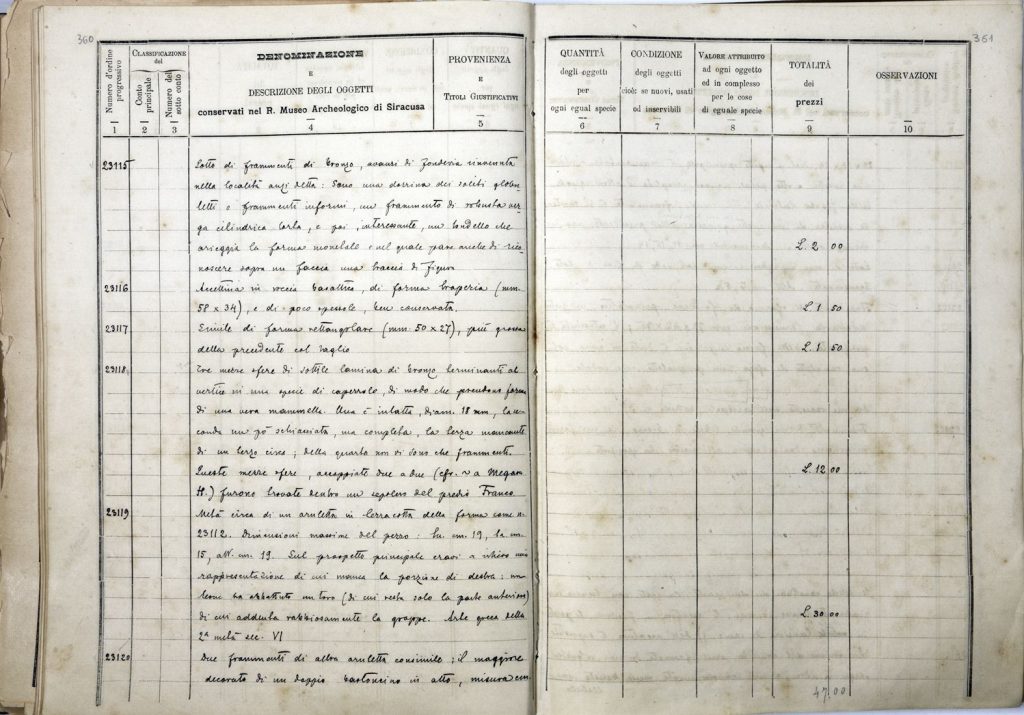 360
CLASSIFICAZIONE
del
Numero d'ordine progressivo
Conto principale
Numero del sotto conto
DENOMINAZIONE
E
DESCRIZIONE DEGLI OGGETTI
conservati nel R. Museo Archeologico di Siracusa
PROVENIENZA
E
TITOLI GIUSTIFICATIVI
1 2 3 4 5
23115 Lotto di frammenti di bronzo, avanzi di fonderia rinvenuta
nella località anzidetta: Sono una dozzina dei soliti globu
letti e frammenti informi, un frammento di robusta ver
ga cilindrica torta, e poi, interessante, un tondello che
arieggia la forma monetale e nel quale pare anche di rico
noscere sopra un faccia una traccia di figura
23116 Accettina in roccia basaltica, di forma trapezia (mm.
58 x 34), e di poco spessore, ben conservata.
23117 Simile di forma rettangolare (mm. 50 x 27), più grossa
della precedente col taglio
23118 Tre mezze sfere di sottile lamina di bronzo terminanti al
vertice in una specie di capezzolo, di modo che prendono forma
di una vera mammella. Una è intatta, diam. 18 mm, la se
conda un pò schiacciata, ma completa, la terza mancante
di un terzo circa; della quarta non vi sono che frammenti.
Queste mezze sfere, accoppiate due a due (cfr. a Megara
H.) furono trovate dentro un sepolcro del predio Franco
23119 Metà circa di un aruletta in terracotta della forma come n.
23112. Dimensioni massime del pezzo: lu. cm. 19, la cm.
15, alt. cm. 19. Sul prospetto principale eravi a rilievo una
rappresentazione di cui manca la porzione di destra: un
leone ha abbattuto un toro (di cui resta solo la parte anteriore)
di cui addenta rabbiosamente la groppa. Arte greca della
2ª metà sec. VI
23120 Due frammenti di altra aruletta consimile; il maggiore
decorato di un doppio bastoncino in alto, misura cm
361
QUANTITÀ
degli oggetti
per
ogni egual specie
6
CONDIZIONE
degli oggetti
cioè: se nuovi, usati
od inservibili
7
VALORE ATTRIBUITO
ad ogni oggetto
ed in complesso
per le cose
di eguale specie
8
TOTALITÀ
dei
prezzi
9
OSSERVAZIONI
10
L. 2 00
L. 1 50
L. 1 50
L. 12 00
L. 30 00
47.00